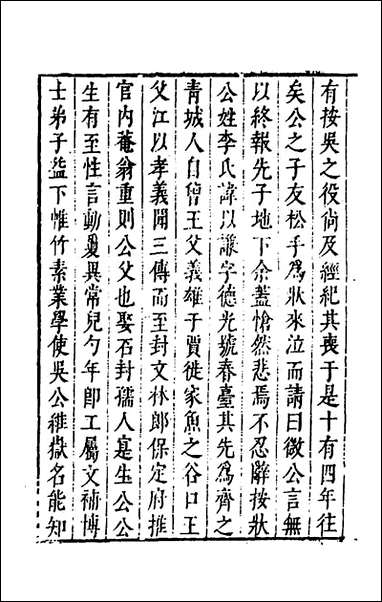 有按吳之役尙及經紀其喪于是十有四年往
矣公之子友松手爲狀來泣而請曰微公言無
以終報先子地下余蓋愴然悲焉不忍辭按狀
公姓李氏諱以謙字德光號春臺其先爲齊之
青城人自曾王父義雄于賈徙家魚之谷口王
父江以孝義聞三傳而至封文林郎保定府推
官內菴翁重則公父也娶石封孺人寔生公公
生有至性言動夐異常兒勺年卽工屬文補博
士弟子益下惟竹素業學使吳公維嶽名能知